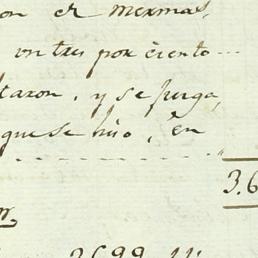 on el mermas,
un tres por ciento
taron, y se juzga,
que se hizo, en
3.6
2699